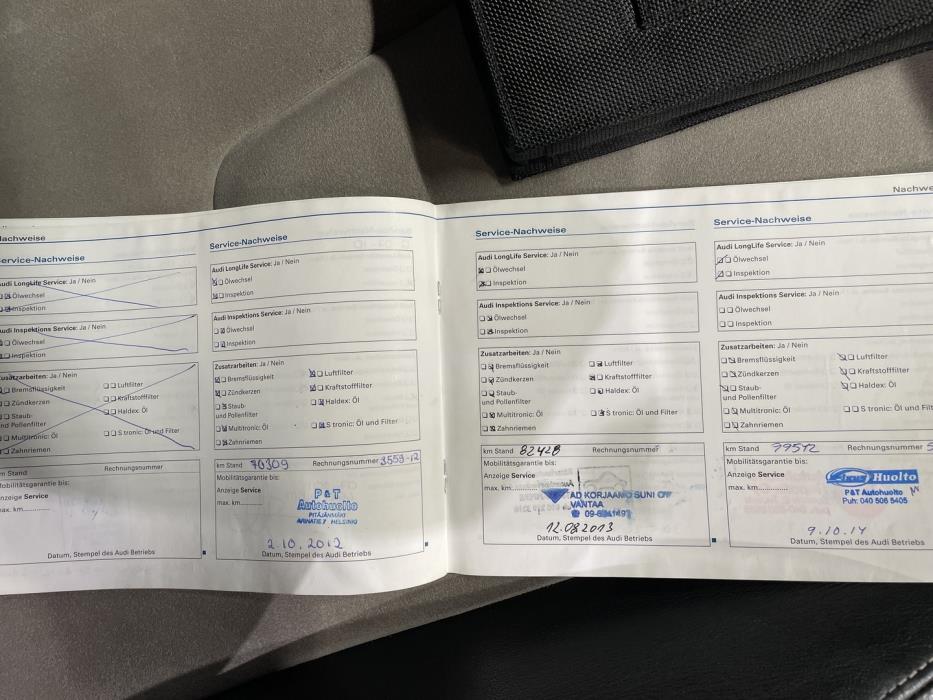 Nachwe
achweise
ervice-Nachweise
udi LongLife Service: Ja / Nein
Ölwechsel
Inspektion
udi Inspektions Service: Ja / Nein
Ölwechsel
Inspektion
Zusatzarbeiten: Ja / Nein
Bremsflüssigkeit
Luftfilter
Zündkerzen
Kraftstofffilter
Staub-
nd Pollenfilter
Haldex: Öl
Multitronic: Öl
S tronic: Öl und Filter
Zahnriemen
m Stand
Rechnungsnummer
Mobilitätsgarantie bis:
nzeige Service
ax. km
Datum, Stempel des Audi Betriebs
Service-Nachweise
Audi LongLife Service: Ja / Nein
Ölwechsel
Inspektion
Audi Inspektions Service: Ja / Nein
Ölwechsel
Inspektion
Zusatzarbeiten: Ja / Nein
Bremsflüssigkeit
Luftfilter
Zündkerzen
Kraftstofffilter
Staub-
und Pollenfilter
Haldex: Öl
Multitronic: Öl
S tronic: Öl und Filter
Zahnriemen
km Stand 70309
Rechnungsnummer 3559-12
Mobilitätsgarantie bis:
Anzeige Service
max. km
P&T
Autohuolto
PITÄJÄNMÄKI
HELSINKI
2.10.2012
Datum, Stempel des Audi Betriebs
Service-Nachweise
Audi LongLife Service: Ja / Nein
Ölwechsel
Inspektion
Audi Inspektions Service: Ja / Nein
Ölwechsel
Inspektion
Zusatzarbeiten: Ja / Nein
Bremsflüssigkeit
Luftfilter
Zündkerzen
Kraftstofffilter
Staub-
und Pollenfilter
Haldex: Öl
Multitronic: Öl
S tronic: Öl und Filter
Zahnriemen
km Stand 82428
Rechnungsnummer
Mobilitätsgarantie bis:
Anzeige Service
max. km
AD KORJAAMO SUNI OY
VANTAA
12.08.2013
Datum, Stempel des Audi Betriebs
Service-Nachweise
Audi LongLife Service: Ja / Nein
Ölwechsel
Inspektion
Audi Inspektions Service: Ja / Nein
Ölwechsel
Inspektion
Zusatzarbeiten: Ja / Nein
Bremsflüssigkeit
Luftfilter
Zündkerzen
Kraftstofffilter
Staub-
und Pollenfilter
Haldex: Öl
Multitronic: Öl
S tronic: Öl und Filt
Zahnriemen
km Stand 99512
Rechnungsnummer 5
Mobilitätsgarantie bis:
Anzeige Service
max. km
Huolto
P&T Autohuolto
Puh: 040 506 5405
9.10.14
Datum, Stempel des Audi Betriebs